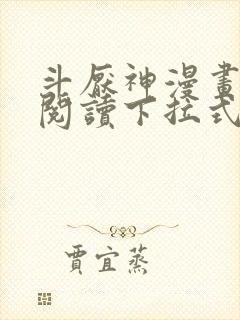 斗厭神漫畫
閱讀下拉式
賈宜蒸